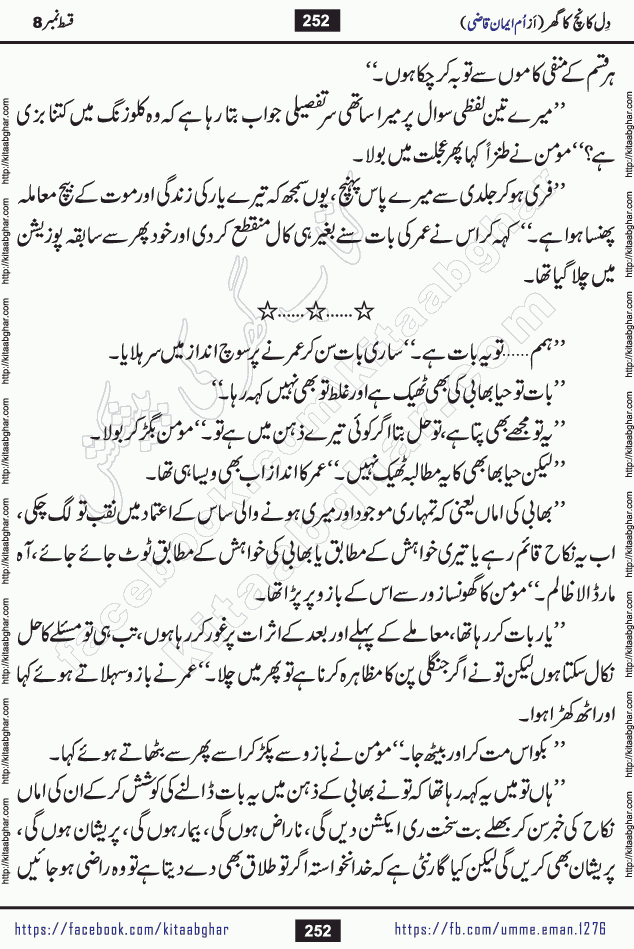 دِل کانچ کا گھر (از اُم ایمان قاضی)
252
قسط نمبر 8
ہر قسم کے منفی کاموں سے توبہ کر چکا ہوں۔‘‘
’’میرے تین لفظی سوال پر میرا ساتھی سر تفصیلی جواب بتا رہا ہے کہ وہ کلوزنگ میں کتنا بزی
ہے؟‘‘ مؤمن نے طنزاً کہا پھر عجلت میں بولا۔
’’فری ہو کر جلدی سے میرے پاس پہنچ، یوں سمجھ کہ تیرے یار کی زندگی اور موت کے بیچ معاملہ
پھنسا ہوا ہے۔‘‘ کہہ کر اس نے عمر کی بات سنے بغیر ہی کال منقطع کر دی اور خود پھر سے سابقہ پوزیشن
میں چلا گیا تھا۔
☆......☆......☆
’’ہمم......تو یہ بات ہے۔‘‘ ساری بات سن کر عمر نے پرسوچ انداز میں سر ہلایا۔
’’بات تو حیا بھابی کی بھی ٹھیک ہے اور غلط تو بھی نہیں کہہ رہا۔‘‘
’’یہ تو مجھے بھی پتا ہے، تو حل بتا اگر کوئی تیرے ذہن میں ہے تو۔‘‘ مؤمن بگڑ کر بولا۔
’’لیکن حیا بھابھی کا یہ مطالبہ ٹھیک نہیں۔‘‘ عمر کا انداز اب بھی ویسا ہی تھا۔
’’بھابی کی اماں یعنی کہ تمہاری موجود اور میری ہونے والی ساس کے اعتماد میں نقب تو لگ چکی،
اب یہ نکاح قائم رہے یا تیری خواہش کے مطابق یا بھابی کی خواہش کے مطابق ٹوٹ جائے جائے، آہ
مار ڈالا ظالم۔‘‘ مؤمن کا گھونسا زور سے اس کے بازو پر پڑا تھا۔
’’یار بات کر رہا تھا، معاملے کے پہلے اور بعد کے اثرات پر غور کر رہا ہوں، تب ہی تو مسئلے کا حل
نکال سکتا ہوں لیکن تو نے اگر جنگلی پن کا مظاہرہ کرنا ہے تو پھر میں چلا۔‘‘ عمر نے بازو سہلاتے ہوئے کہا
اور اٹھ کھڑا ہوا۔
’’بکواس مت کر اور بیٹھ جا۔‘‘ مؤمن نے بازو سے پکڑ کر اسے پھر سے بٹھاتے ہوئے کہا۔
’’ہاں تو میں یہ کہہ رہا تھا کہ تو نے بھابی کے ذہن میں یہ بات ڈالنے کی کوشش کر کے ان کی اماں
نکاح کی خبر سن کر بھلے بت سخت ری ایکشن دیں گی، ناراض ہوں گی، بیمار ہوں گی، پریشان ہوں گی،
پریشان بھی کریں گی لیکن کیا گارنٹی ہے کہ خدانخواستہ اگر تو طلاق بھی دے دیتا ہے تو وہ راضی ہو جائیں
http://kitaabghar.com http://kitaabghar.com http://kitaabghar.com http://kitaabghar.com http://kitaabghar.com http://kitaabghar.com http://kitaabghar.com http://kitaabghar.com
http://kitaabghar.com http://kitaabghar.com http://kitaabghar.com http://kitaabghar.com http://kitaabghar.com http://kitaabghar.com http://kitaabghar.com http://kitaabghar.com
کتاب گھر کی پیشکش
kitaabghar.com
facebook.com/kitaabghar
https://facebook.com/kitaabghar
252
https://fb.com/umme.eman.1276